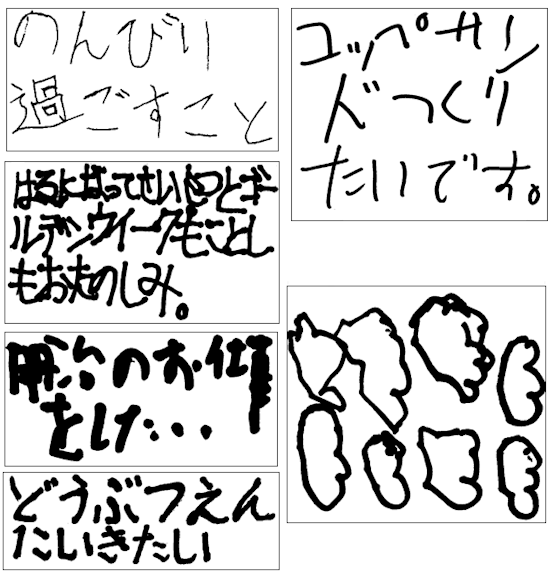 のんびり
過ごすこと
はるになってせいかつとゴー
ルデンウイークもことし
もおたのしみ。
明治のお仕事
をした・・・
どうぶつえん
にいきたい
コッペサン
ドつくり
たいです。